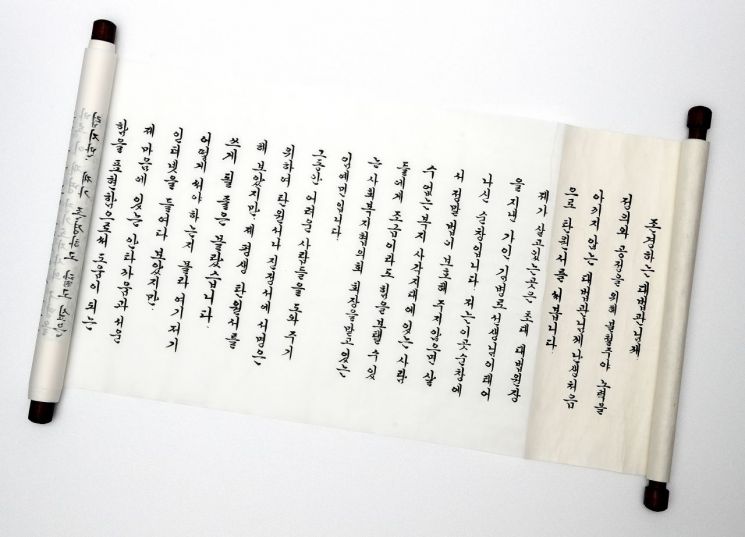 존경하는 대법관님께
정의와 공정을 위해 불철주야 노력을
아끼지 않는 대법관님께 난생처음
으로 탄원서를 써봅니다.
제가 살고있는곳은 초대 대법원장
을 지낸 가인 김병로 선생님이 태어
나신 순창입니다. 저는 이곳 순창에
서 정말 법이 보호해 주지 않으면 살
수 없는 복지 사각지대에 있는 사람
들에게 조금이라도 힘을 보탤 수 있
는 사회복지협의회 회장을 맡고 있는
임예민입니다.
그동안 어려운 사람들을 도와 주기
위하여 탄원서나 진정서에 서명은
해 보았지만 제 평생 탄원서를
쓰게 될 줄은 몰랐습니다.
어떻게 써야 하는지 몰라 여기저기
인터넷을 들여다 보았지만
제 마음에 있는 안타까움과 서운
함을 표현함으로써 도움이 되는